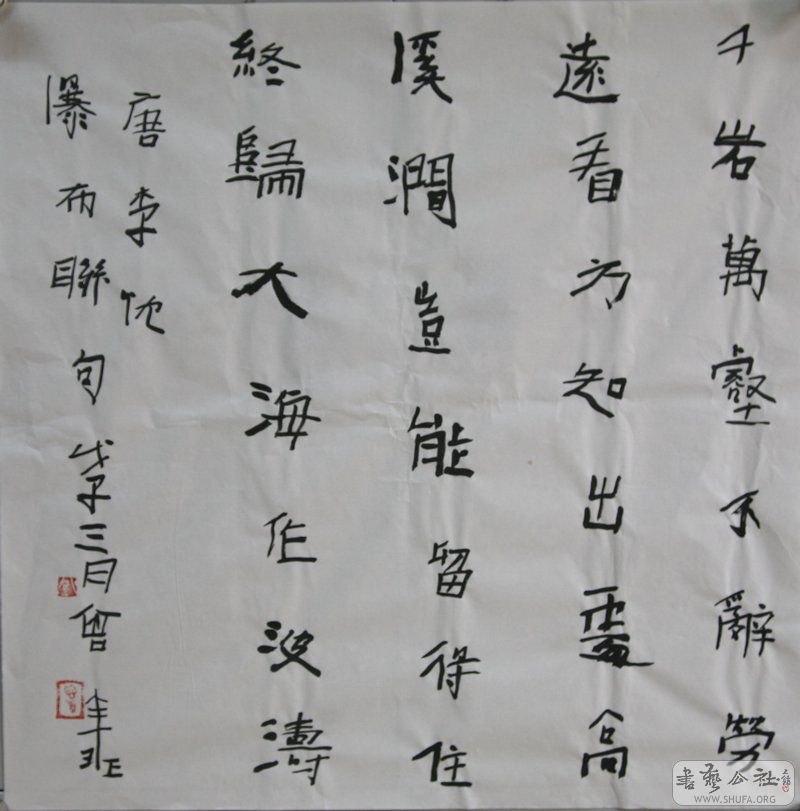 千岩萬壑不辭勞
遠看方知出處高
溪澗豈能留得住
終歸大海作波濤
唐李忱
瀑布聯句戊子三月曾
書藝公社
WWW.SHUFA.ORG